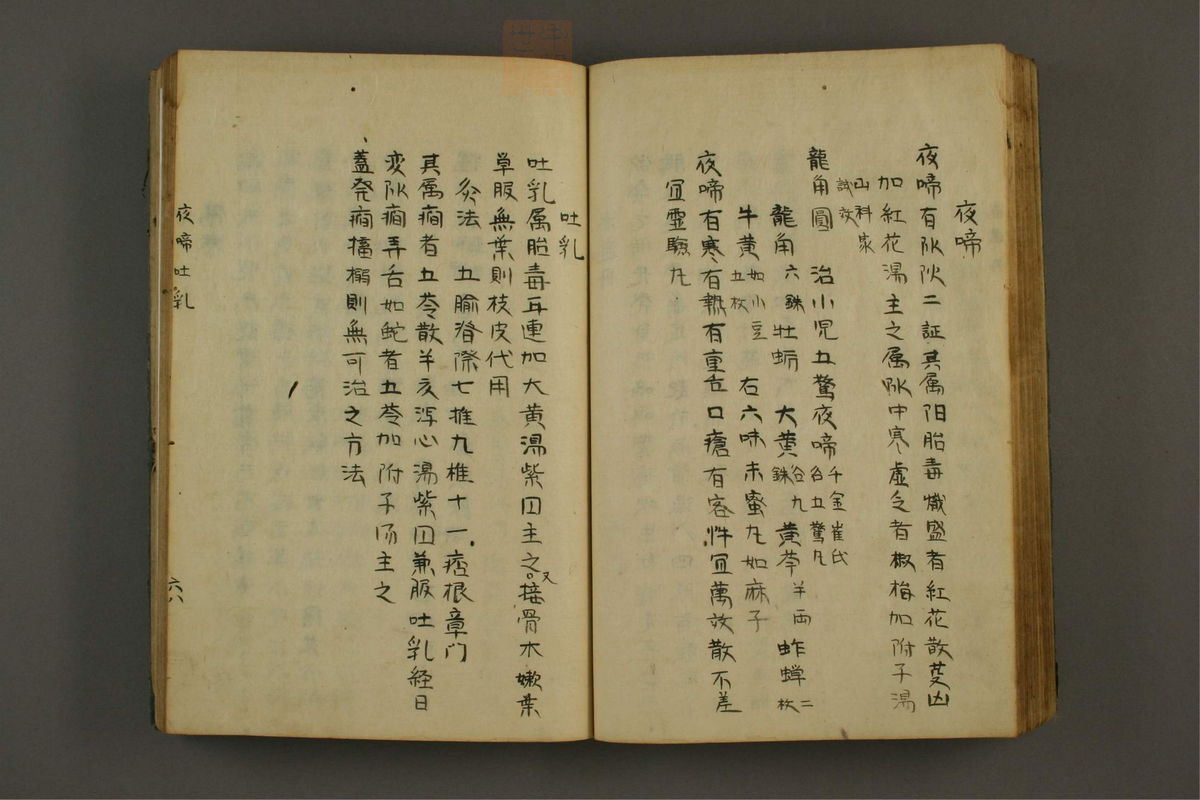 夜啼
夜啼有阦阥二証其属阳胎毒熾盛者紅花散芰凶
加紅花湯主之属阥中寒虚乏者椒梅加附子湯
山科家
試效
龍角圓 治小児五驚夜啼 千金崔氏
名五驚丸
龍角六銖 牡蛎 大黄各九銖 黄芩半両 蚱蝉二枚
牛黄如小豆五枚 右六味末蜜丸如麻子
夜啼有寒有熱有重舌口瘡有客忤宜萬效散不差
宜霊驗丸
吐乳
吐乳属胎毒耳連加大黄湯紫円主之又接骨木嫩葉
草服無葉則枝皮代用
灸法 五腧脊際七椎九椎十一 痞根章门
其属癇者五苓散半夏泻心湯紫円兼服吐乳経日
変阥癇弄舌如蛇者五苓加附子汤主之
蓋発癇搐搦則無可治之方法
夜啼 吐乳
六八